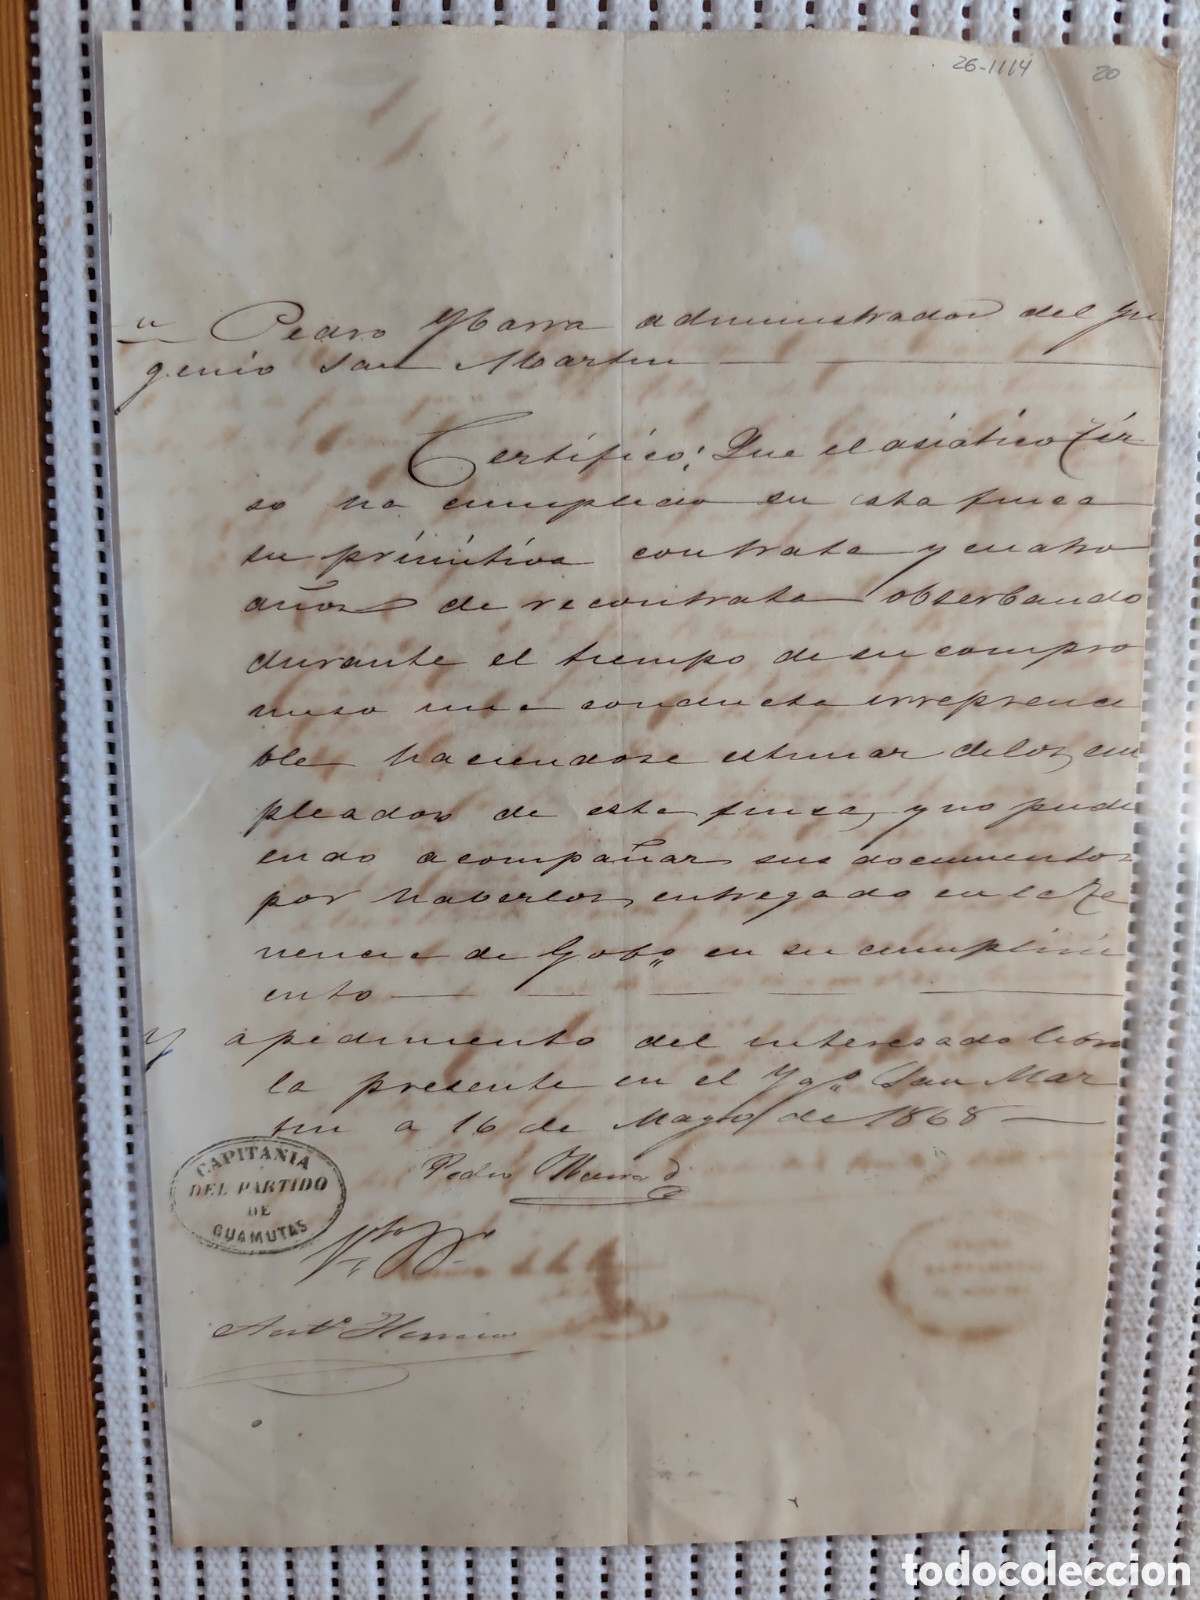 26-1114 20
Pedro Ybarra administrador del Yn
genio San Martin
Certifico: Que el asiatico Tir
so ha cumplido en esta finca
su primitiva contrata y cuatro
años de recontrata obserbando
durante el tiempo de su compro
miso una conducta irreprenci
ble haciendose estimar de los em
pleados de esta finca, y no pudi
endo acompañar sus documentos
por haberlos entregado en la Te
nencia de Gobo. en su cumplimi
ento
Y apedimento del interesado libro
la presente en el Yngo. San Mar
tin a 16 de Mayo de 1868
Pedro Ybarra
CAPITANIA
DEL PARTIDO
DE
GUAMUTAS
Anto.
todocoleccion